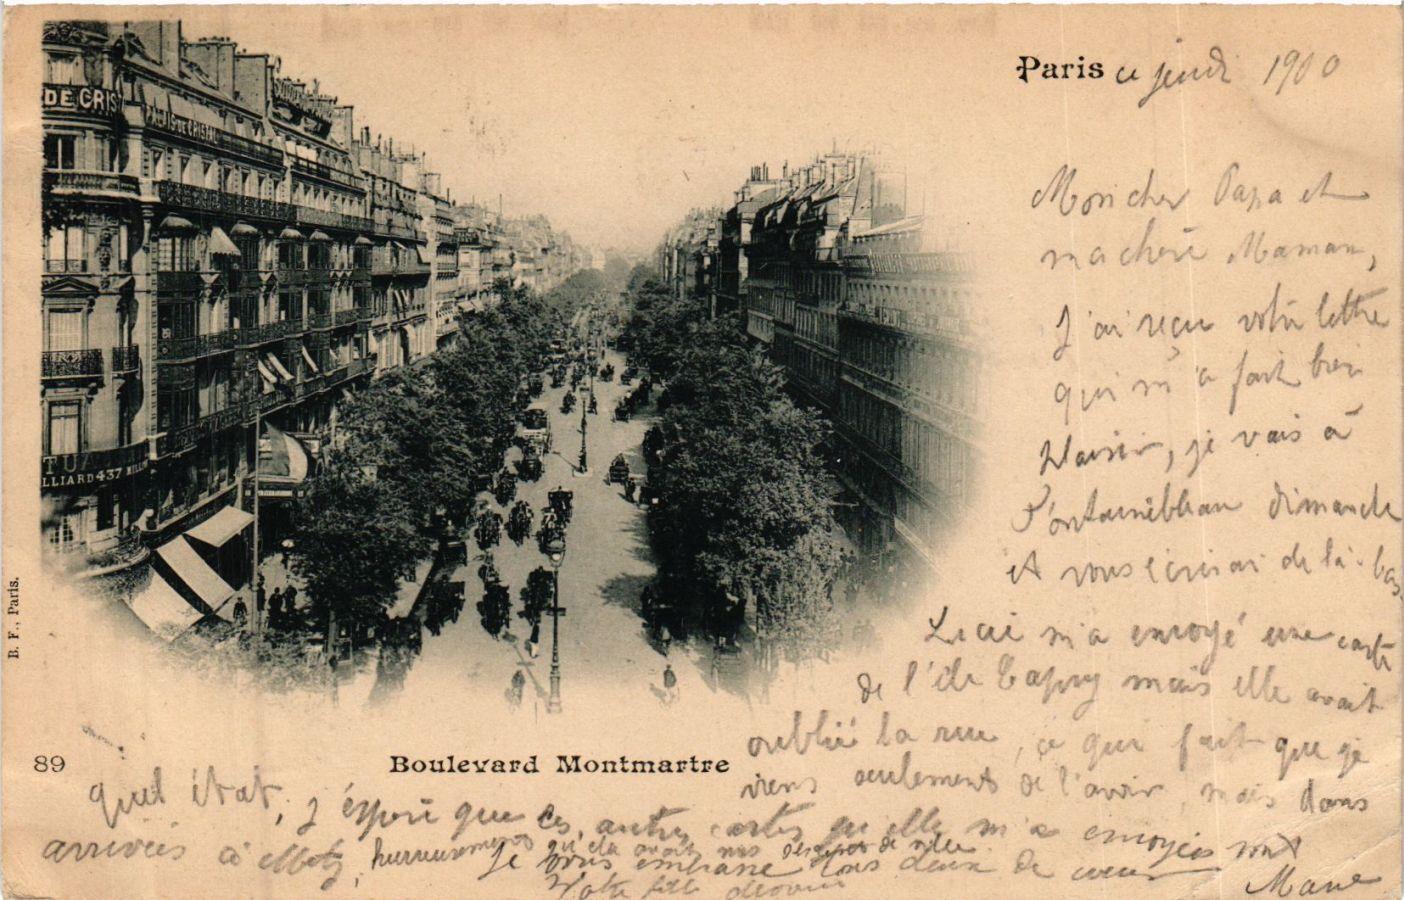 Paris ce jeudi 1900
Mon cher Papa et
ma chère Maman,
J'ai reçu votre lettre
qui m'a fait bien
plaisir, je vais à
Fontainebleau dimanche
et vous écrirai de là-bas
m'a envoyé une carte
de l'île mais elle avait
oublié la rue, ce qui fait que je
viens seulement de l'avoir, mais dans
quel état, J'éspère que les autres cartes qu'elle m'a envoyées sont
arrivées à Metz, heureusement
Je vous embrasse tous deux de coeur
Votre fille
DE CRIS
PALAIS DE CRISTAL
LLIARD 437
B. F., Paris.
89
Boulevard Montmartre